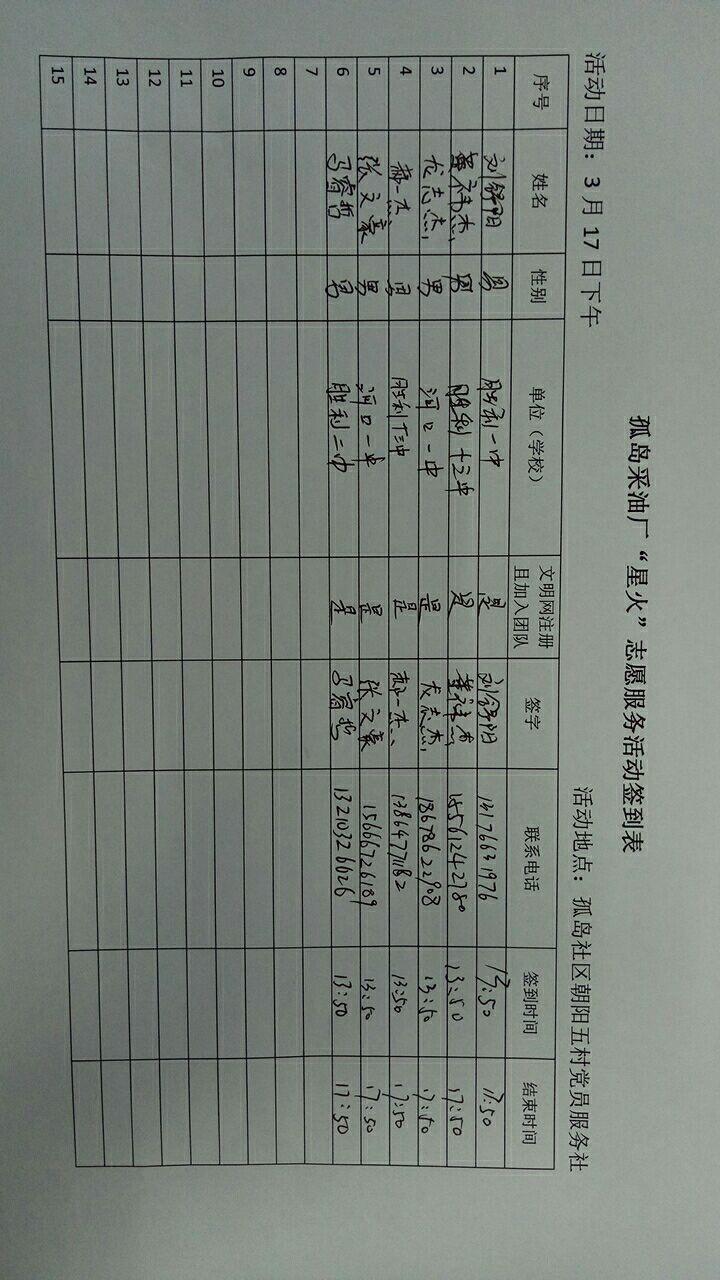 孤岛采油厂“星火”志愿服务活动签到表
活动日期：3月17日下午 活动地点：孤岛社区朝阳五村党员服务社
序号 姓名 性别 单位（学校） 文明网注册且加入团队 签字 联系电话 签到时间 结束时间
1 刘舒阳 男 胜利一中 是 刘舒阳 13176631976 13:50 17:50
2 董祥杰 男 胜利十二中 是 董祥杰 15561242780 13:50 17:50
3 尤志杰 男 河口一中 是 尤志杰 18678622908 13:50 17:50
4 郝一杰 男 胜利 是 郝一杰 13864771182 13:50 17:50
5 张文豪 男 河口一中 是 张文豪 15666726189 13:50 17:50
6 马睿哲 男 胜利二中 是 马睿哲 13210326626 13:50 17:50
7
8
9
10
11
12
13
14
15